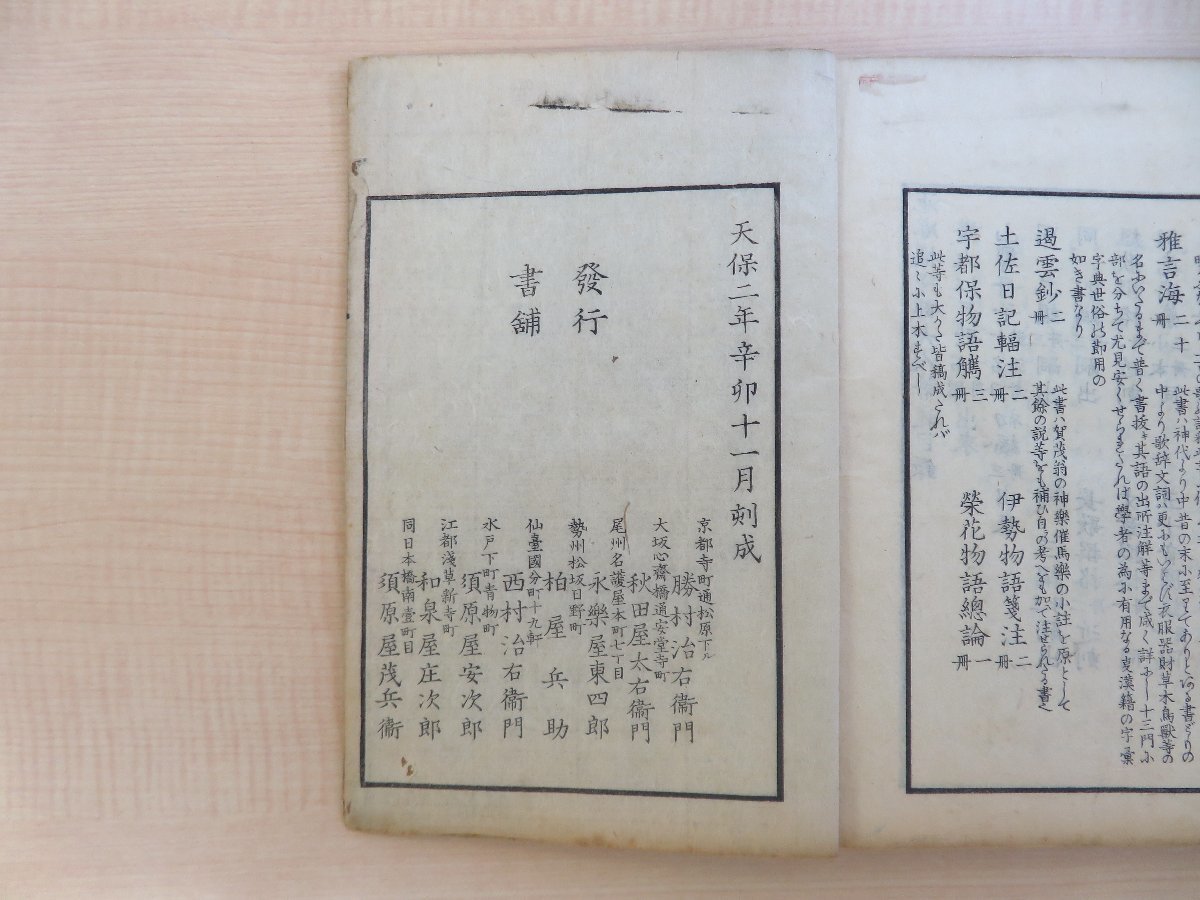 雅言海 二十冊
此書ハ神代より中昔の末小至りてありとある書どもの
中より歌辞文詞ハ更小もいはず衣服器財草木鳥獣等の
名小いたるまで普く書抜き其語の出所注解等まで咸く詳小し十三門小
部を分ちて尤見安くせられたれば學者の為小有用なる事漢籍の字彙
字典世俗の節用の
如き書なり
遏雲鈔 二冊
此書ハ賀茂翁の神樂催馬樂の小註を原として
其餘の説等をも補ひ自の考へをも加て注せられたる書也
土佐日記輻注 二冊
伊勢物語箋注 二冊
宇都保物語觹 三冊
榮花物語總論 一冊
此等も大かた皆稿成たれバ
追々小上木すべし
天保二年辛卯十一月刻成
發行
書舗
京都寺町通松原下ル
勝村治右衞門
大坂心齋橋通安堂寺町
秋田屋太右衞門
尾州名護屋本町七丁目
永樂屋東四郎
勢州松坂日野町
柏屋兵助
仙臺國分町十九軒
西村治右衞門
水戸下町青物町
須原屋安次郎
江都淺草新寺町
和泉屋庄次郎
同日本橋南壹町目
須原屋茂兵衞